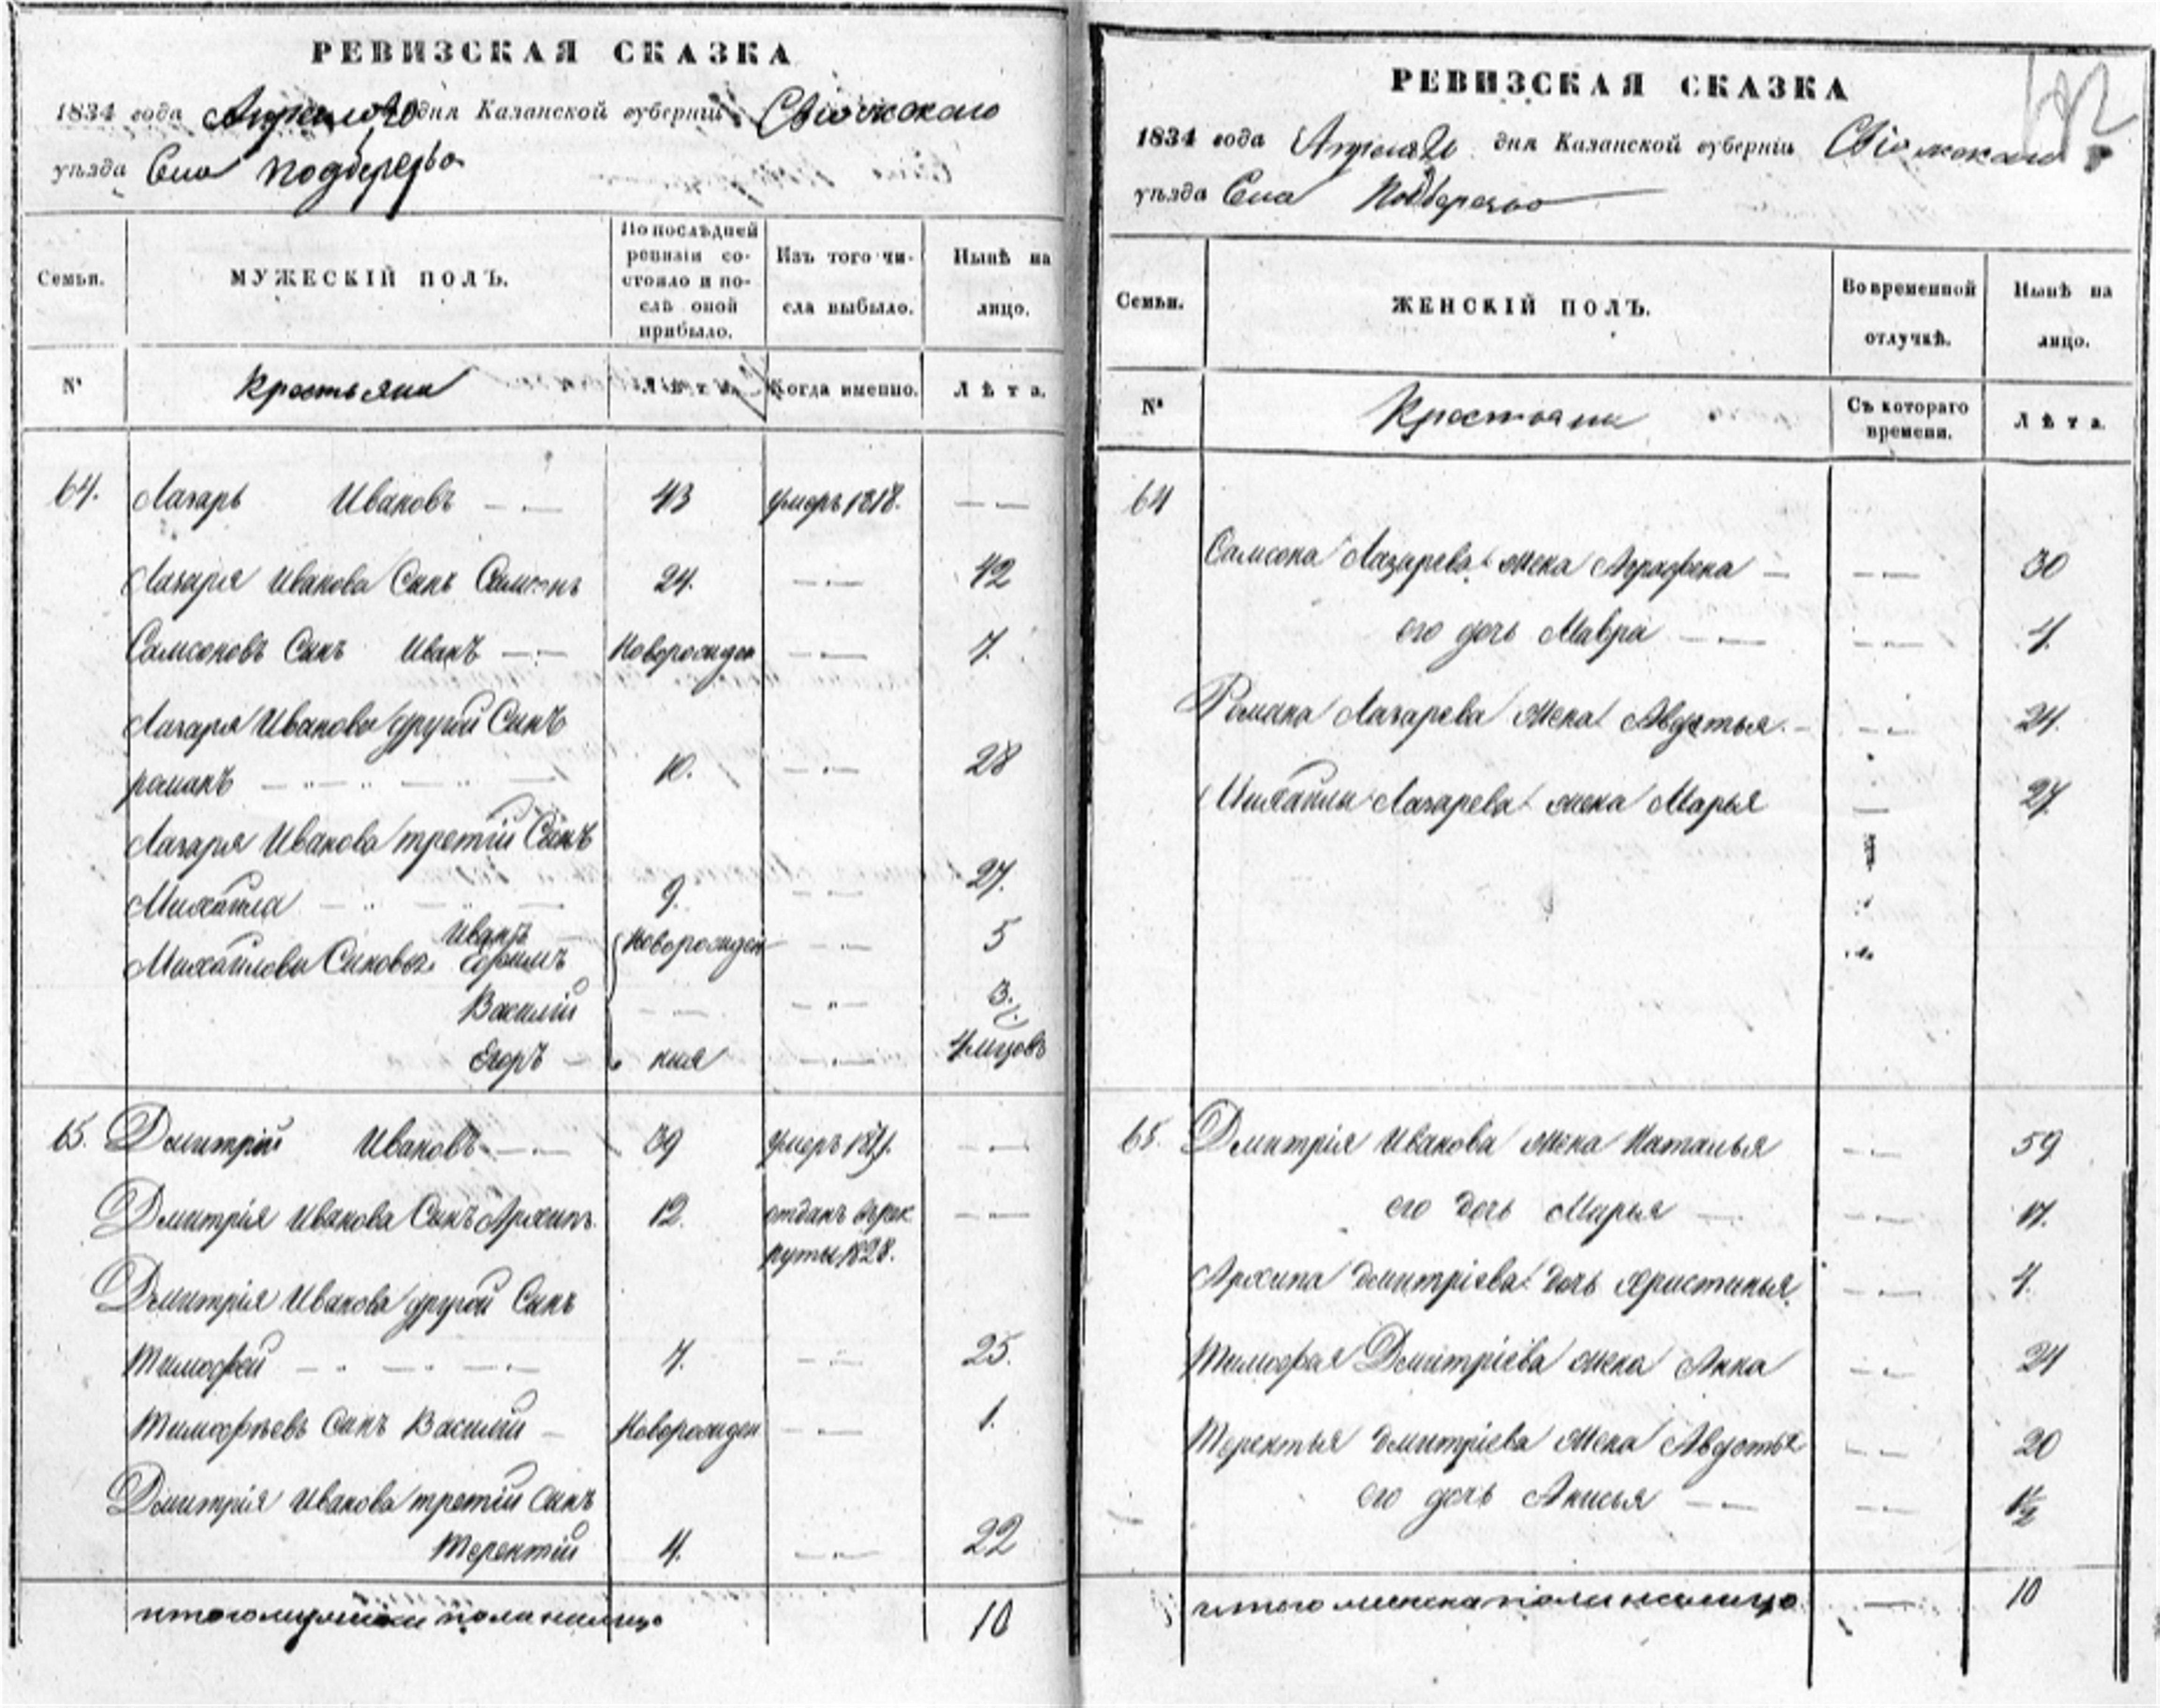 РЕВИЗСКАЯ СКАЗКА
1834 года Апреля 20 дня Казанской губерніи Свіяжскаго
уѣзда Села подберезья
Семьи.
МУЖЕСКІЙ ПОЛЪ.
По послѣдней ревизіи состояло и послѣ оной прибыло.
Изъ того числа выбыло.
Нынѣ на лицо.
№
крестьяни
Лѣта.
Когда именно.
Лѣта.
64. Лазарь Ивановъ 43 умеръ 1818.
Лазаря Иванова Сынъ Самсонъ 24. 42
Самсоновъ Сынъ Иванъ Новорожден 7.
Лазаря Иванова другой Сынъ
романъ 10. 28
Лазаря Иванова третій Сынъ
Михайла 9. 27.
Иванъ
Михайловы Сыновья Ефимъ Новорожден 5
Василій 3.
Егоръ ныя
65. Дмитрій Ивановъ 39
Дмитрія Иванова Сынъ Архипъ 12. отданъ врек
руты 1828.
Дмитрія Иванова другой Сынъ
Тимофей 7. 25.
Тимофѣевъ Сынъ Василій Новорожден 1.
Дмитрія Иванова третій Сынъ
Терентій 4. 22
итого мужеска пола налицо 10
РЕВИЗСКАЯ СКАЗКА
1834 года Апреля 20 дня Казанской губерніи Свіяжскаго
уѣзда Села Подберезья
Семьи.
ЖЕНСКІЙ ПОЛЪ.
Во временной отлучкѣ.
Нынѣ на лицо.
№
Крестьяни
Съ котораго времени.
Лѣта.
64
Самсона Лазарева жена Аграфена 30
его дочь Мавра 4.
Романа Лазарева жена Авдотья 24.
Михайлы Лазарева жена Марья 27.
65. Дмитрія Иванова жена Наталья 59
его дочь Марья 17.
Архипа дмитріева дочь Христинья 7.
Тимофея Дмитріева жена Анна 24
Терентья дмитріева жена Авдотья 20
его дочь Анисья 1½
итого женска пола налицо 10